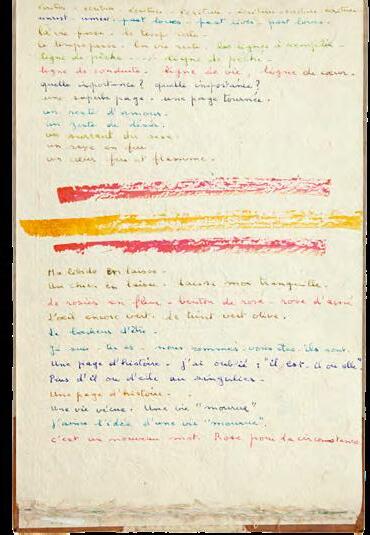 écriture - écriture - écriture - écriture - écriture
past loves - past lives - past loves.
la vie passe. le temps reste.
le temps passe. la vie reste. les lignes
ligne de pêche ... ligne de pêche.
ligne de conduite. ligne de vie. ligne de cœur.
quelle importance? quelle importance?
une superbe page. une page tournée.
un reste d'amour.
un zeste de désir.
un sursaut du sexe.
un sexe en feu
un cœur feu et flamme.
Ma libido en laisse.
Un chien en laisse. laisse moi tranquille.
le rosier en fleur. bouton de rose. rose d'
L'œil encore vert. le teint vert olive.
le d'être.
Je suis. tu es. nous sommes. vous êtes. ils sont.
Une page d'histoire. j'ai oublié : "il est. il ou elle"
Pas d'il ou d'elle au singulier.
Une page d'histoire.
Une vie vécue. Une vie "mourue"
j'aime l'idée d'une vie "mourue".
c'est un nouveau mot. Rose pour la circonstance